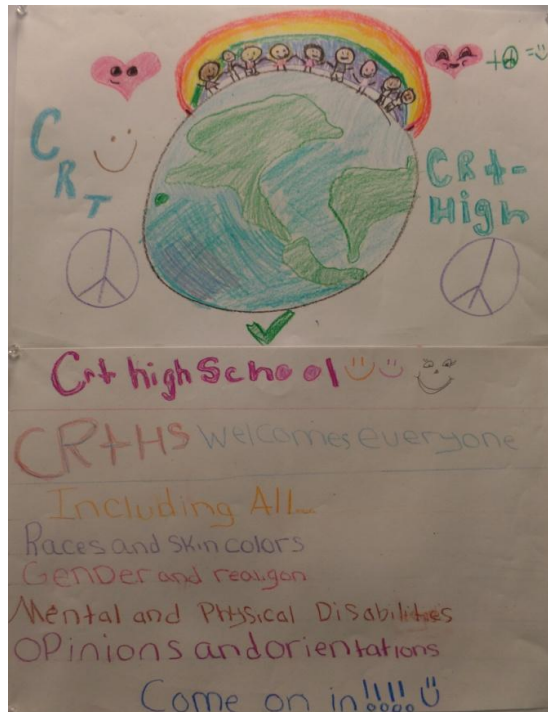 CRT
CRt-
High
Crt high School
CRtHS welcomes everyone
Including All...
Races and skin colors
Gender and realigon
Mental and Physical Disabilities
Opinions and orientations
Come on in!!!!